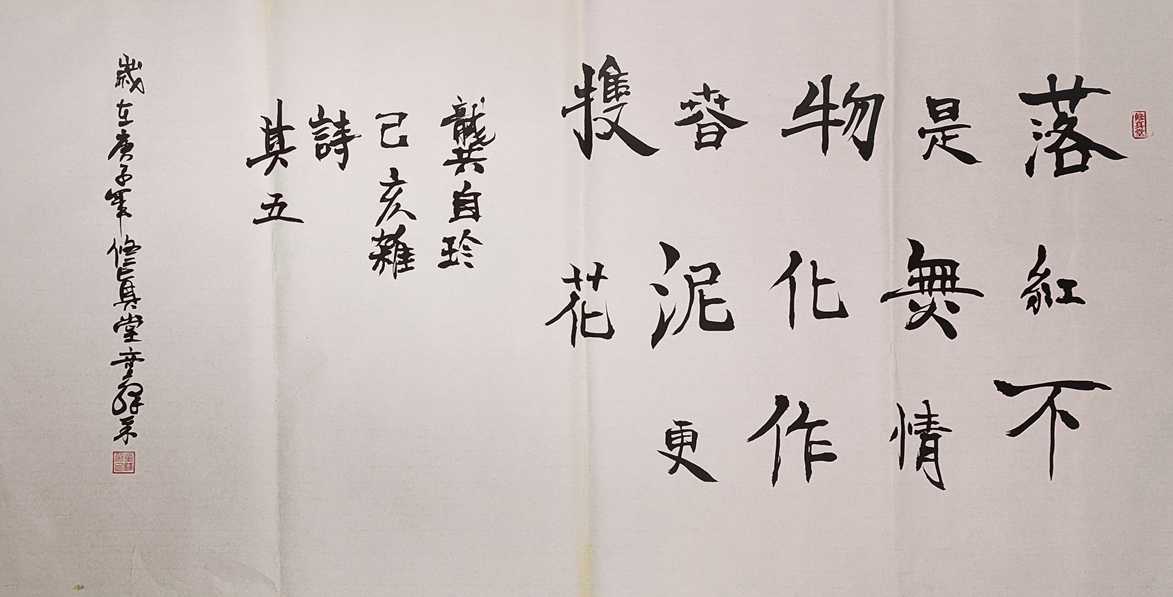 修真堂
落紅不
是無情
物化作
春泥更
護花
龔自珍
己亥雜
詩
其五
歲在庚子年修真堂童